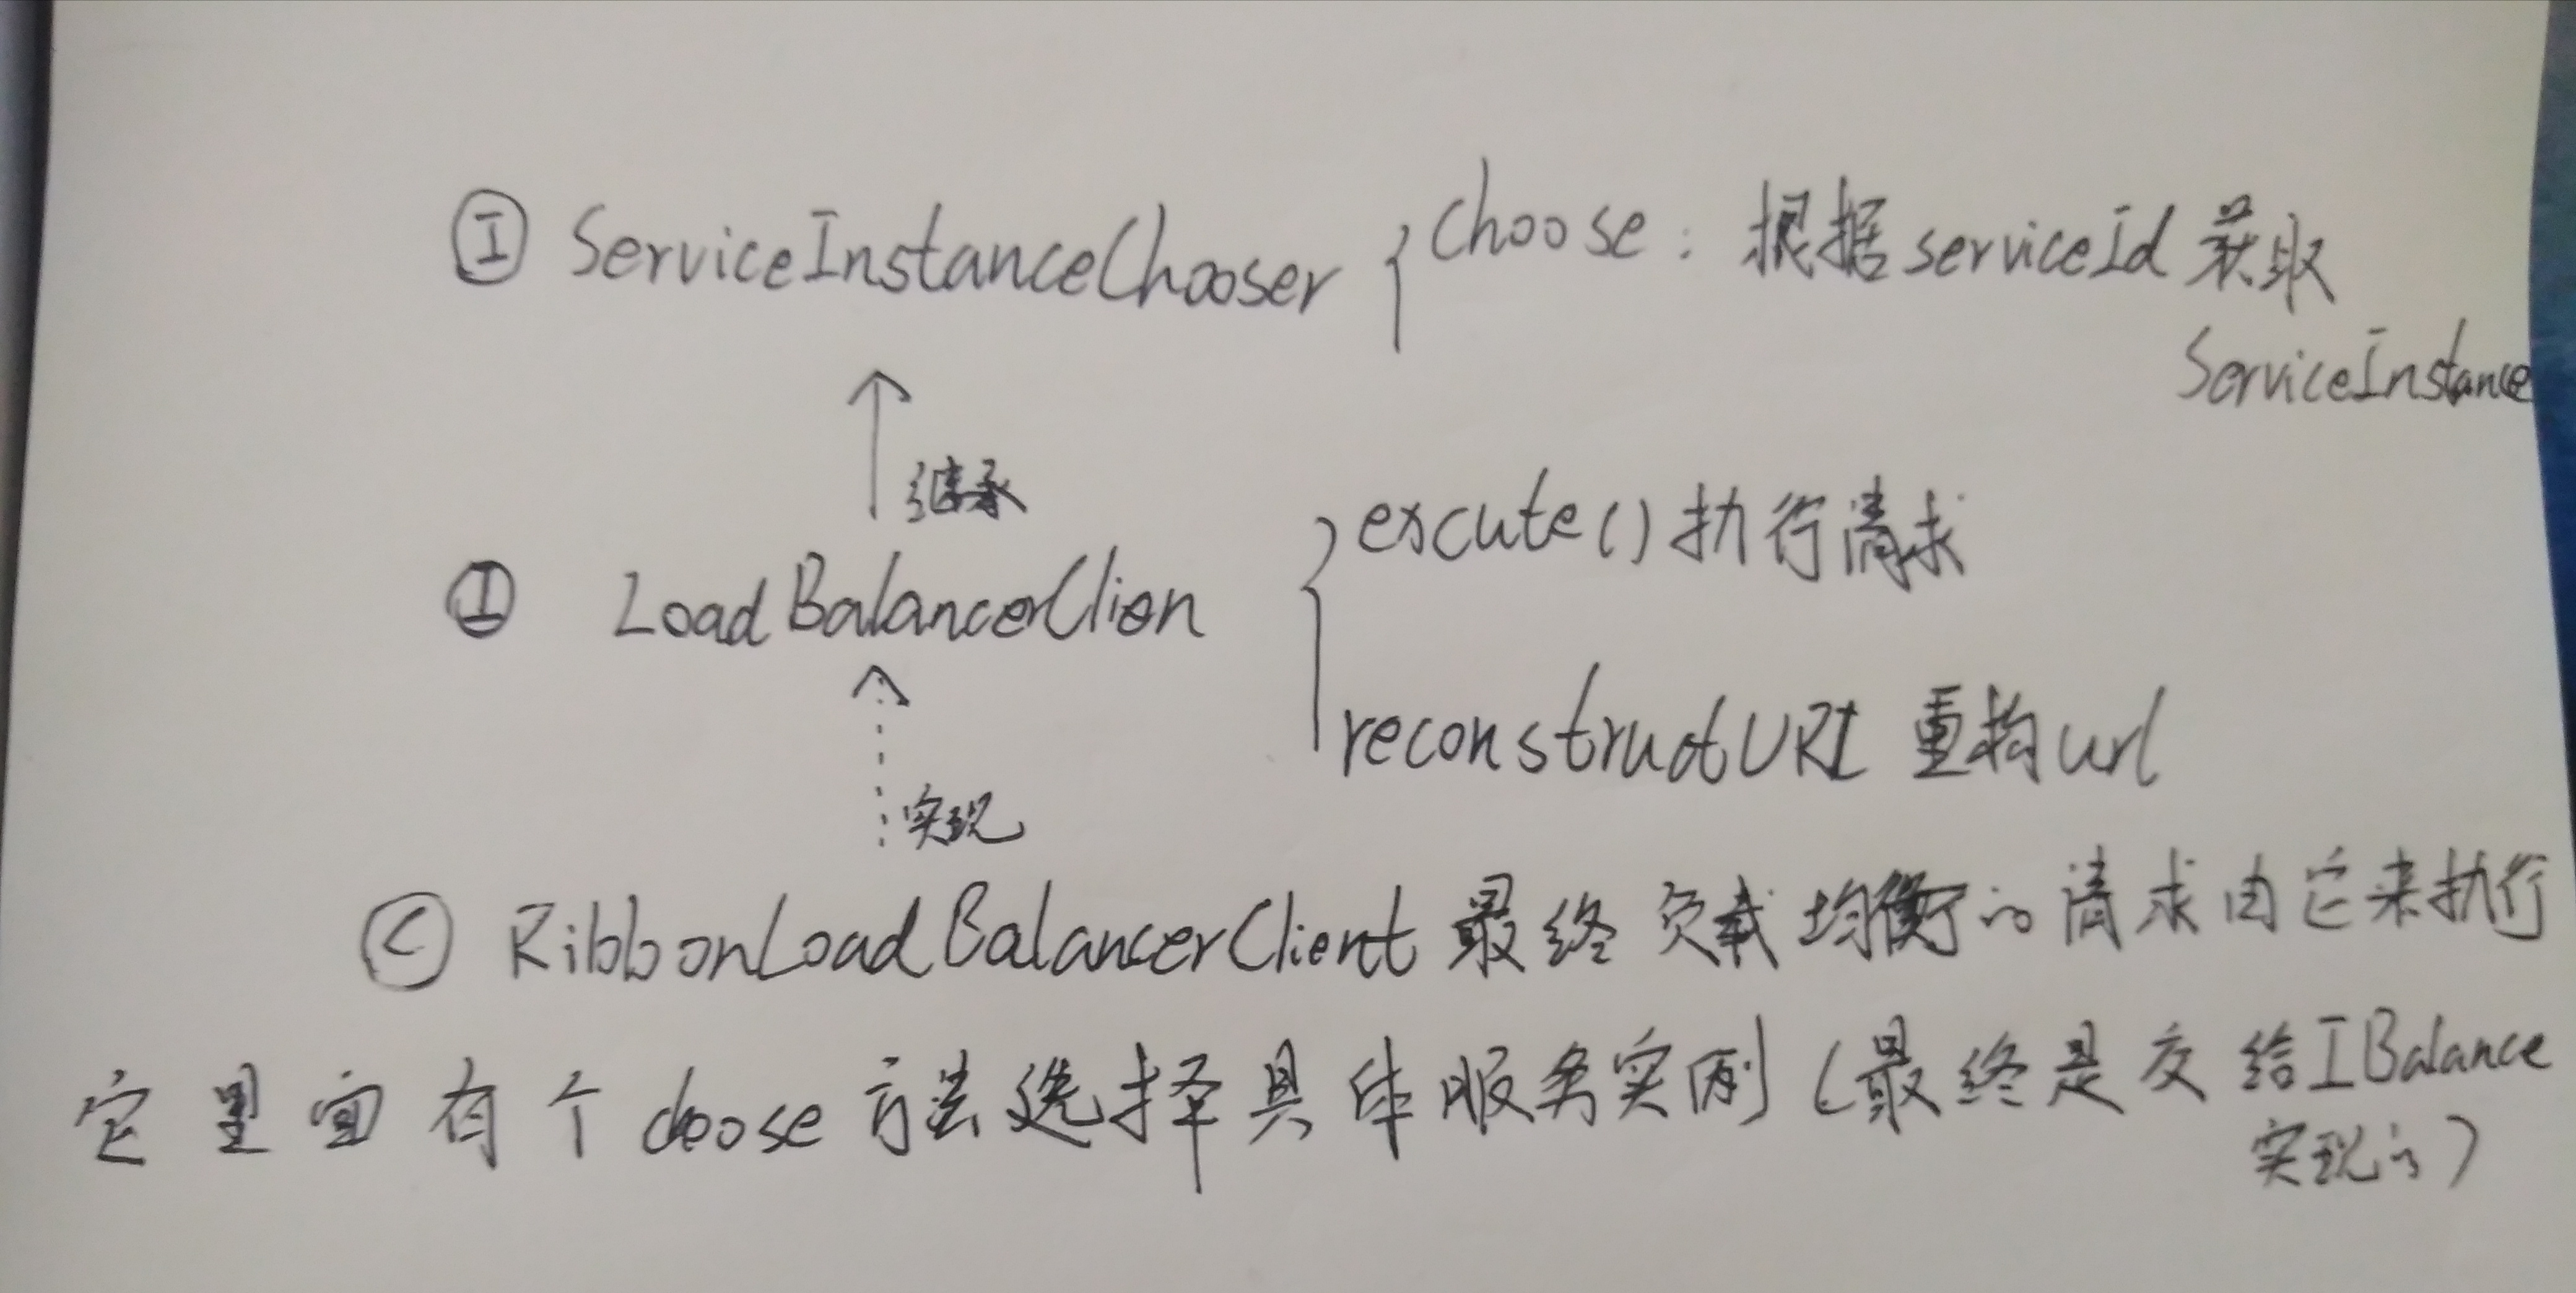 Ⓘ ServiceInstanceChooser { choose : 根据serviceId 获取
ServiceInstance
继承
Ⓘ LoadBalancerClien { excute() 执行请求
reconstructURI 重构url
实现
Ⓒ RibbonLoadBalancerClient 最终负载均衡的请求由它来执行
它里面有个 choose 方法选择具体服务实例 (最终是交给IBalance
实现的)